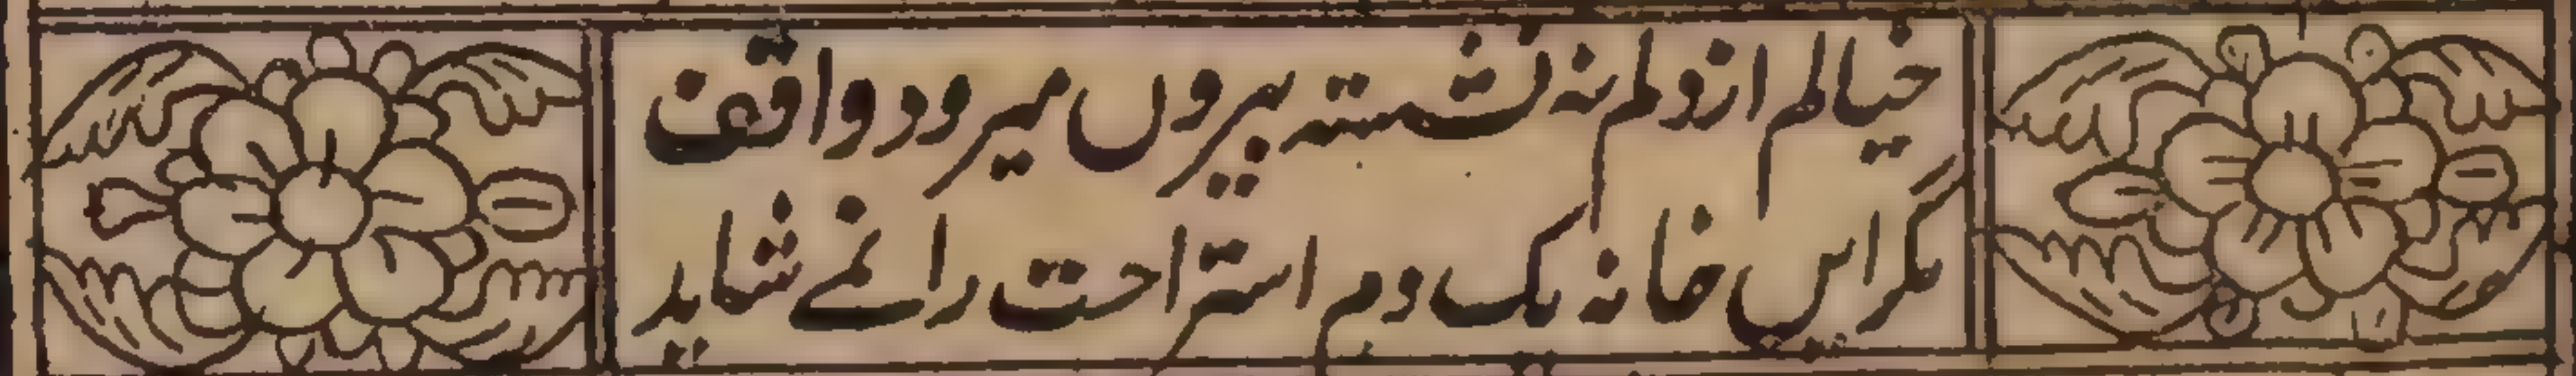 خیالم از ولم نہ نشستہ بیروں میرود واقف
مگر ایں خانہ یک دم استراحت را نمے شاید